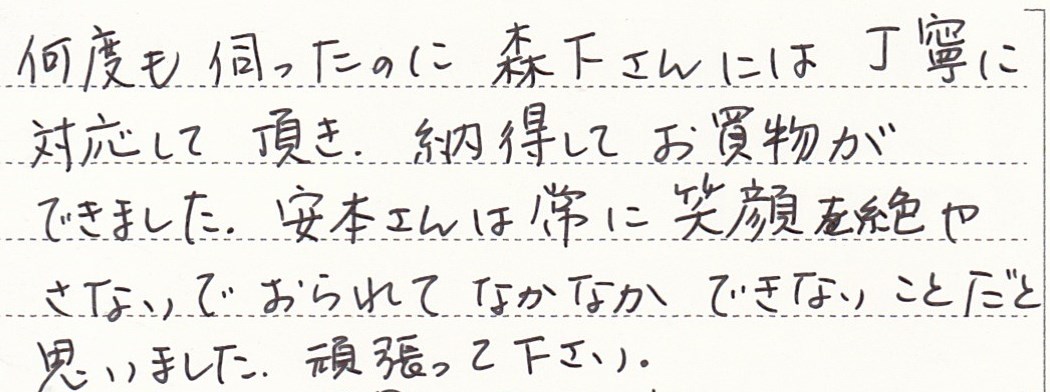 何度も伺ったのに 森下さんには 丁寧に
対応して 頂き. 納得して お買物が
できました. 安本さんは常に 笑顔を絶や
さないで おられて なかなか できないことだと
思いました. 頑張って下さい。